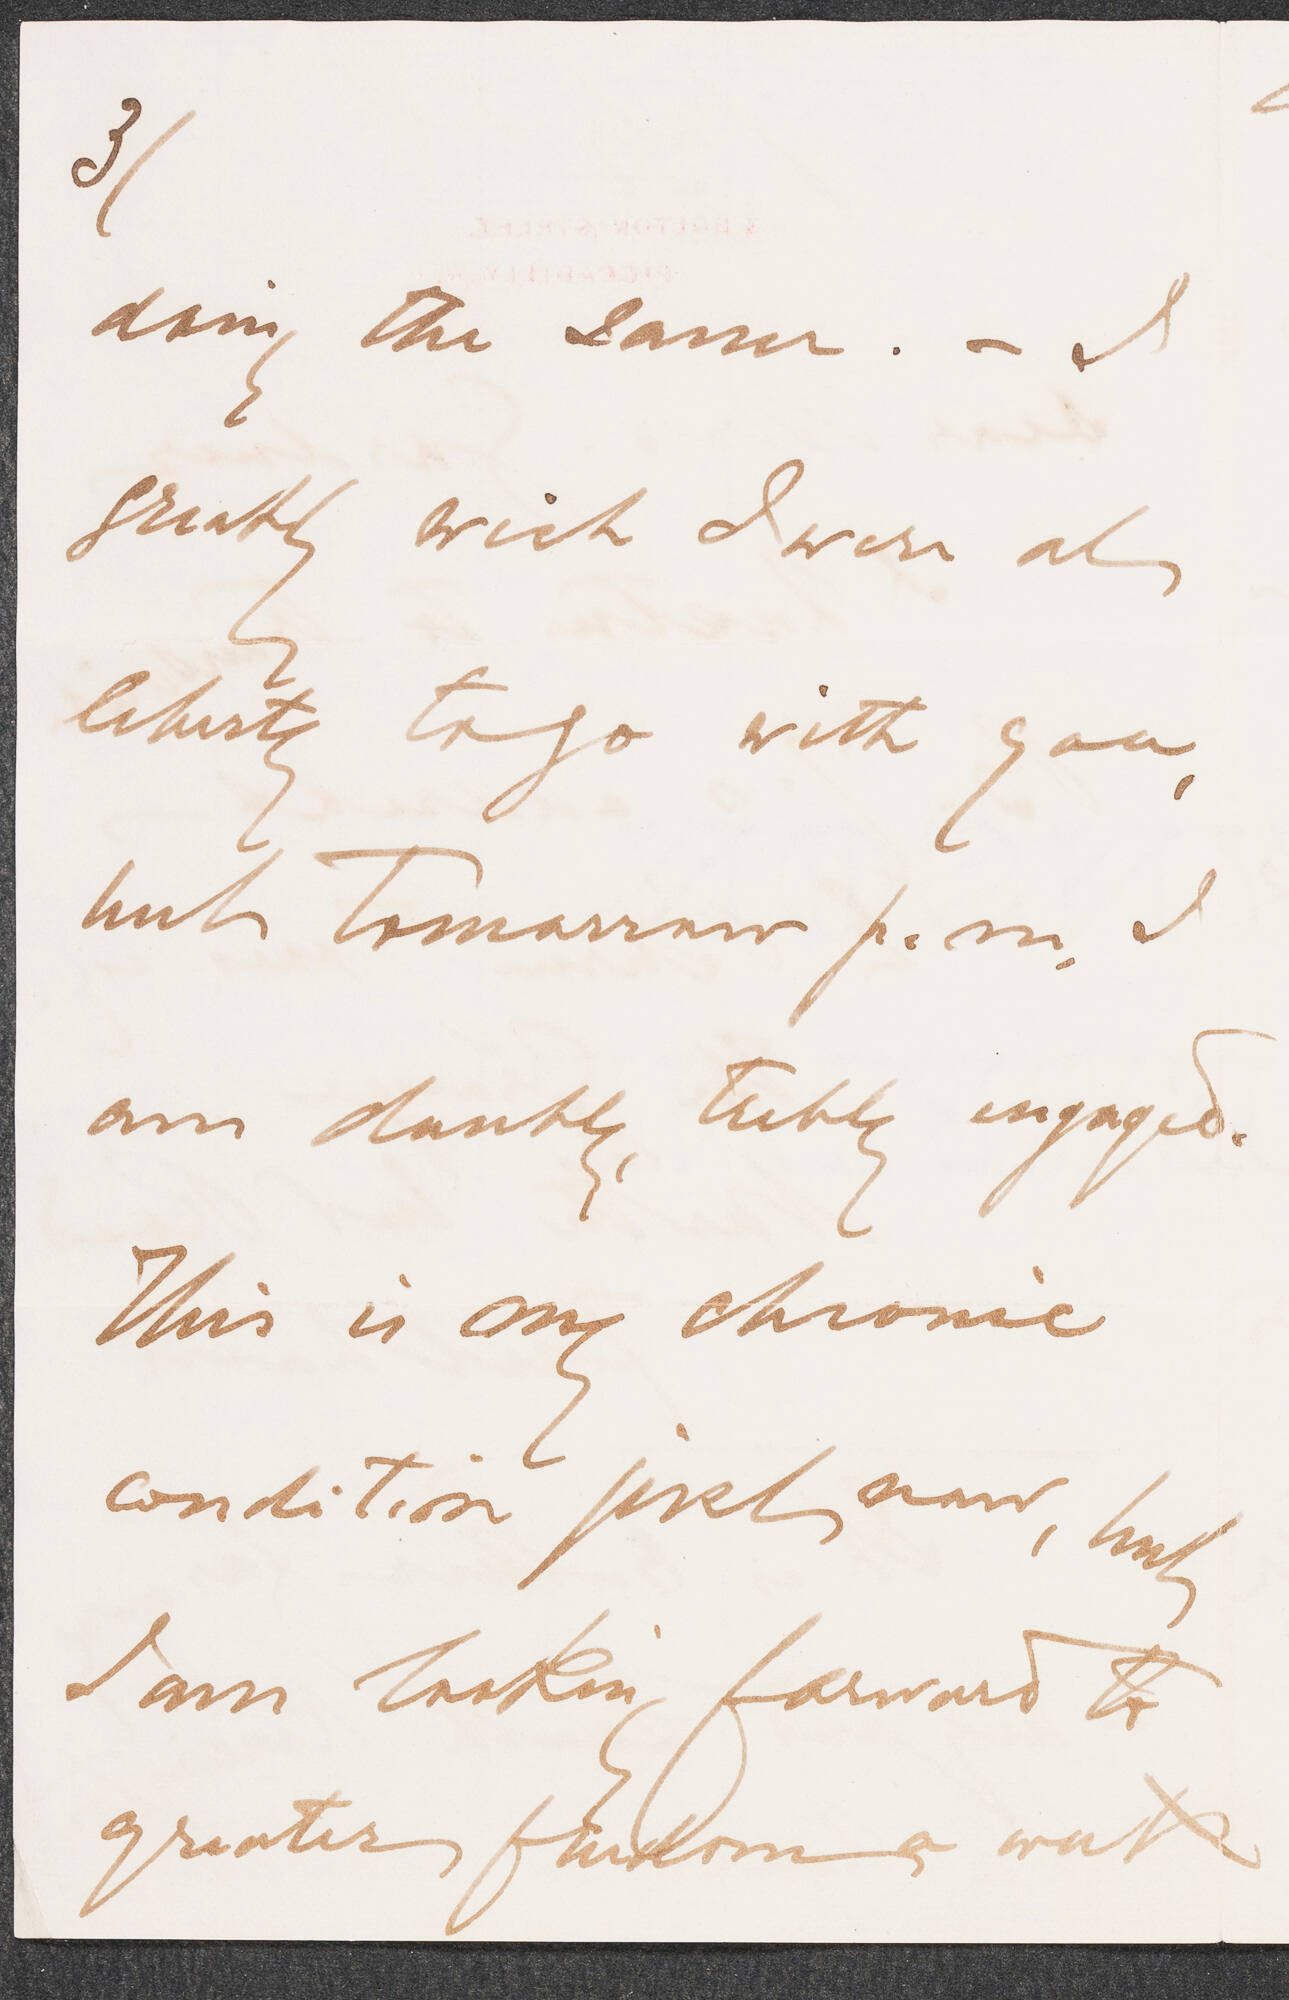 3/
doing the same. — I
greatly wish I were at
liberty to go with you,
but tomorrow p.m. I
am doubly, trebly engaged.
This is my chronic
condition just now, but
I am looking forward to
greater freedom a week